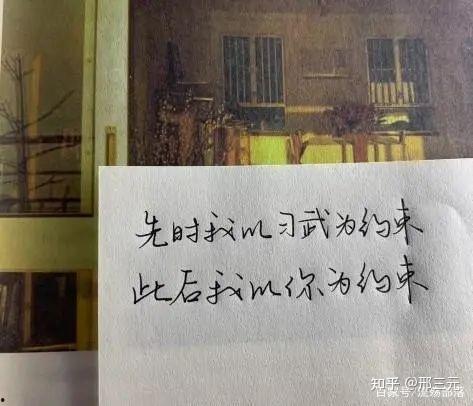 先时我以习武为约束
此后我以你为约束
知乎 @邢三元
百家号/流殇部落